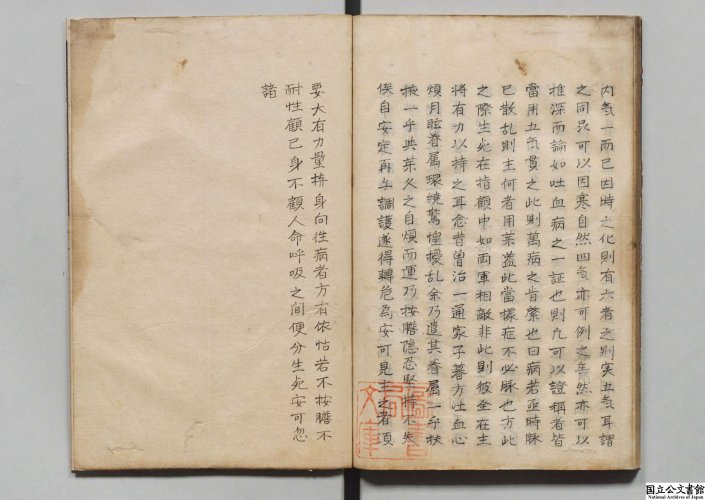 内気一而已因時之化則有六者之別実五気耳謂
之同炅可以因寒自然四気亦可例之矣然亦可以
推深而論如吐血病之一証也則凡可以證稱者皆
當用五気貫之此則萬病之肯綮也曰病若亟時脉
已散乱則主何者用薬蓋此當據症不必脉也方此
之際生死在指顧中如両軍相敵非此則彼全在主
将有力以持之耳念昔曽治一通家子暮方吐血心
煩月眩眷属環繞驚惶擾乱余乃遣其眷属一手扶
掖一手共薬久之自煩而運乃按膽隠忍堅持不失
俟自安定再与調護遂得轉危為安可見主之者須
要大有力量拚身向性病者方有依怙若不按膽不
耐性顧己身不顧人命呼吸之間便分生死安可忽
諸
国立公文書館
National Archives of Japan